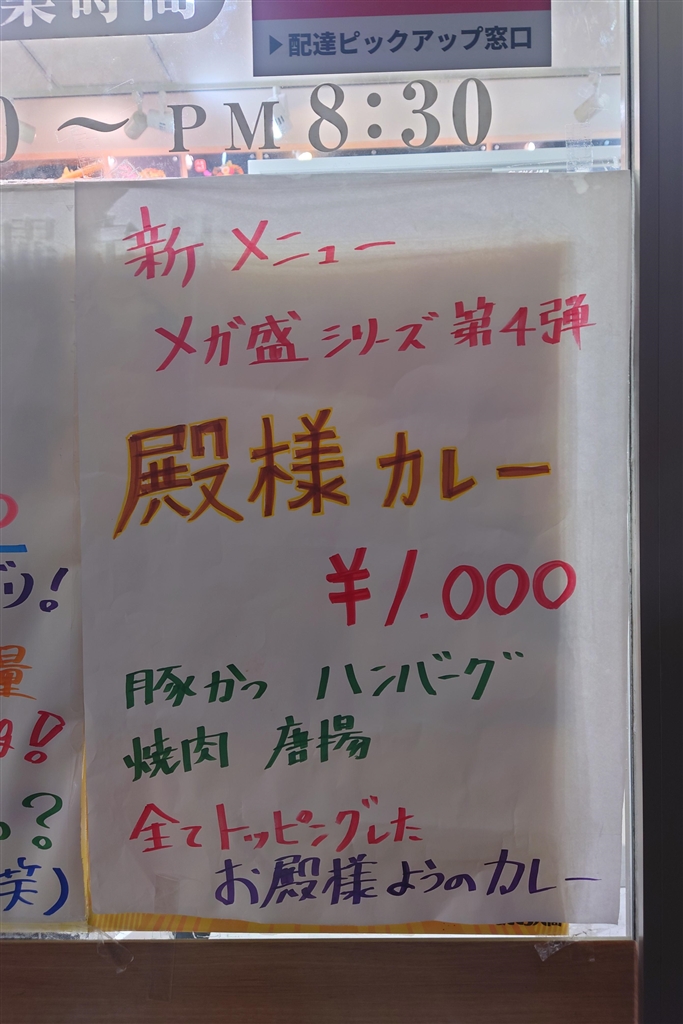 業時間
▶配達ピックアップ窓口
0 〜PM 8:30
新メニュー
メガ盛シリーズ第4弾
殿様カレー
¥1.000
豚かつ ハンバーグ
焼肉 唐揚
全てトッピングした
お殿様ようのカレー
り!
量
!
?
笑)